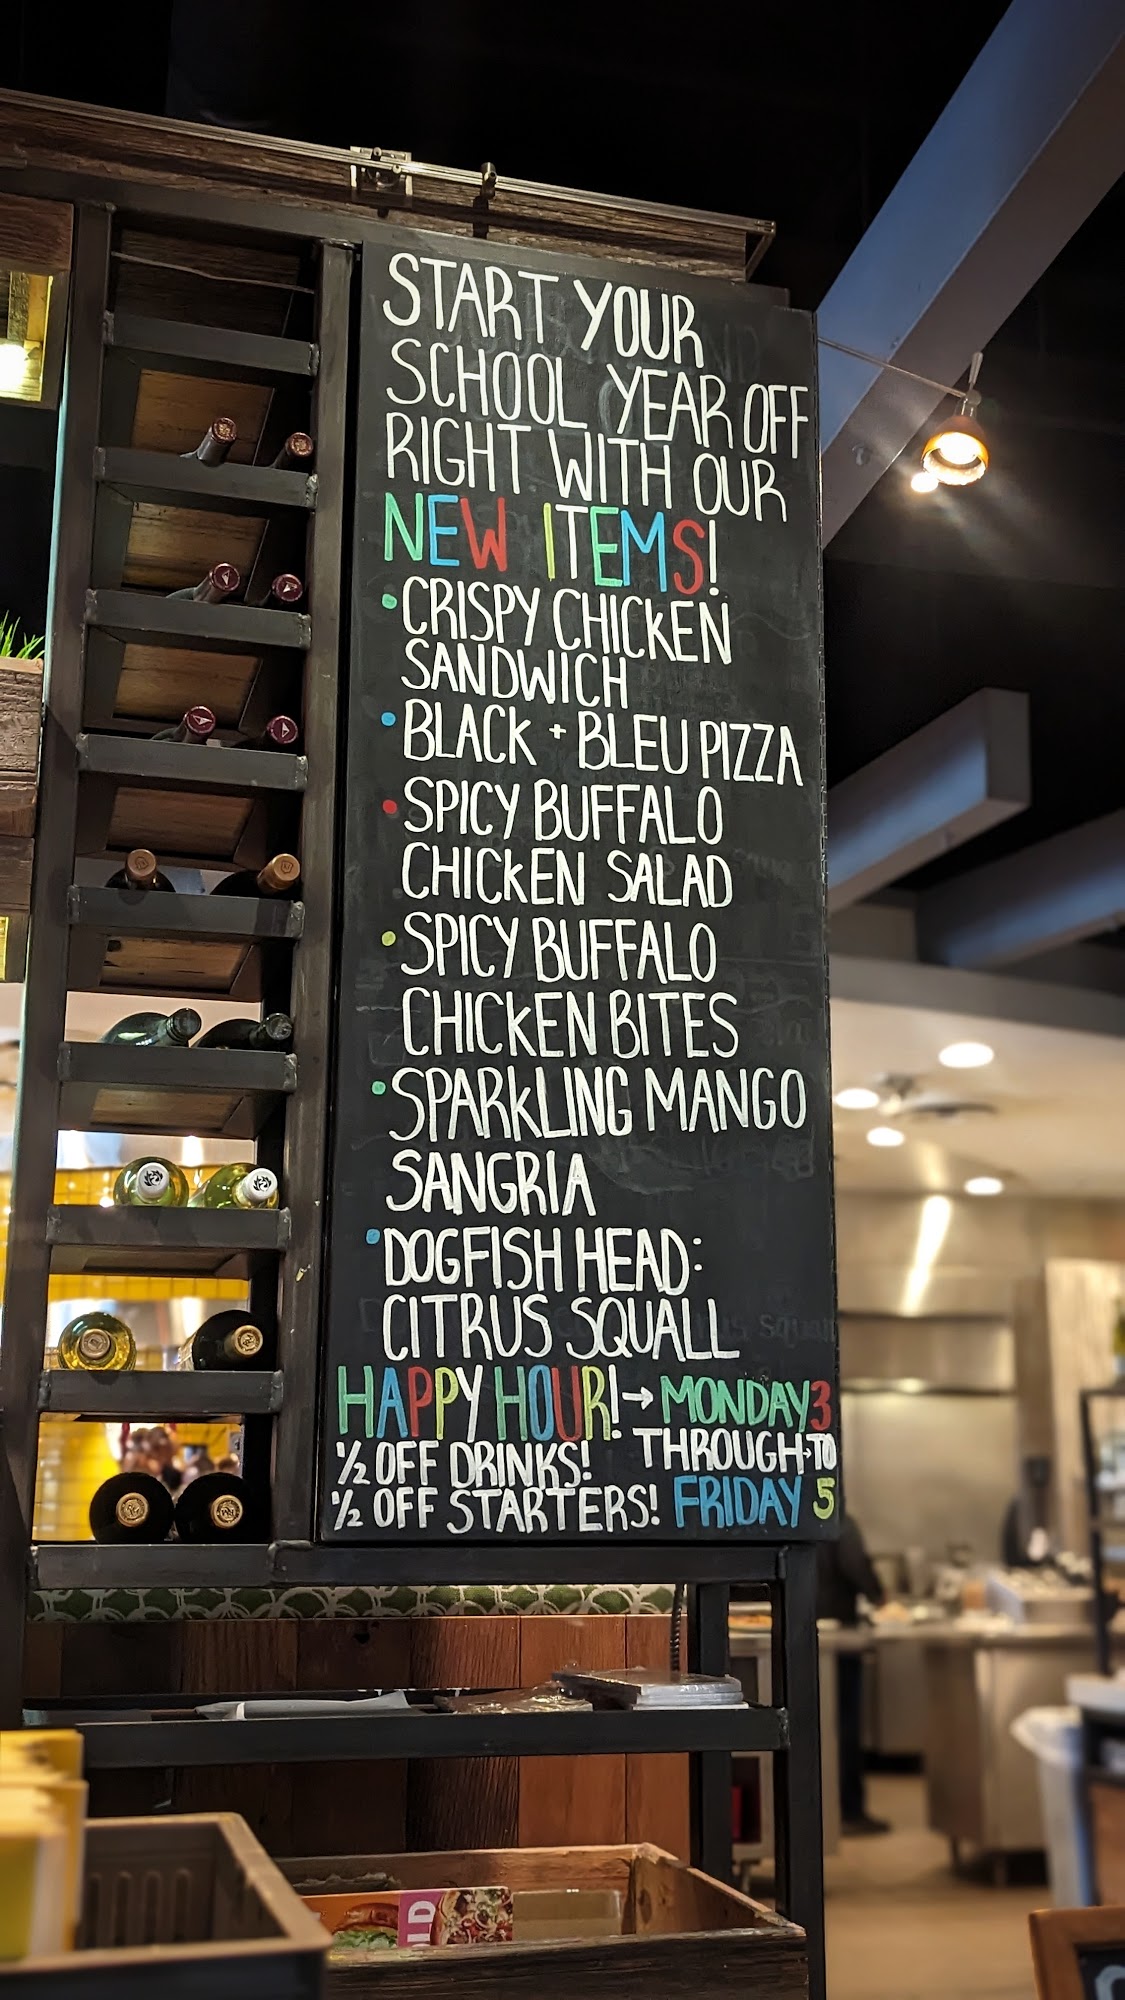 START YOUR
SCHOOL YEAR OFF
RIGHT WITH OUR
NEW ITEMS!
• CRISPY CHICKEN
SANDWICH
• BLACK + BLEU PIZZA
• SPICY BUFFALO
CHICKEN SALAD
• SPICY BUFFALO
CHICKEN BITES
• SPARKLING MANGO
SANGRIA
• DOGFISH HEAD:
CITRUS SQUALL
HAPPY HOUR! → MONDAY 3
½ OFF DRINKS! THROUGH → TO
½ OFF STARTERS! FRIDAY 5